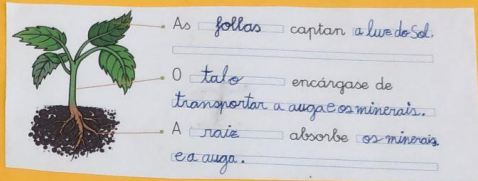 As follas captan a luz do Sol.
O talo encárgase de
transportar a auga e os minerais.
A raiz absorbe os minerais
e a auga.